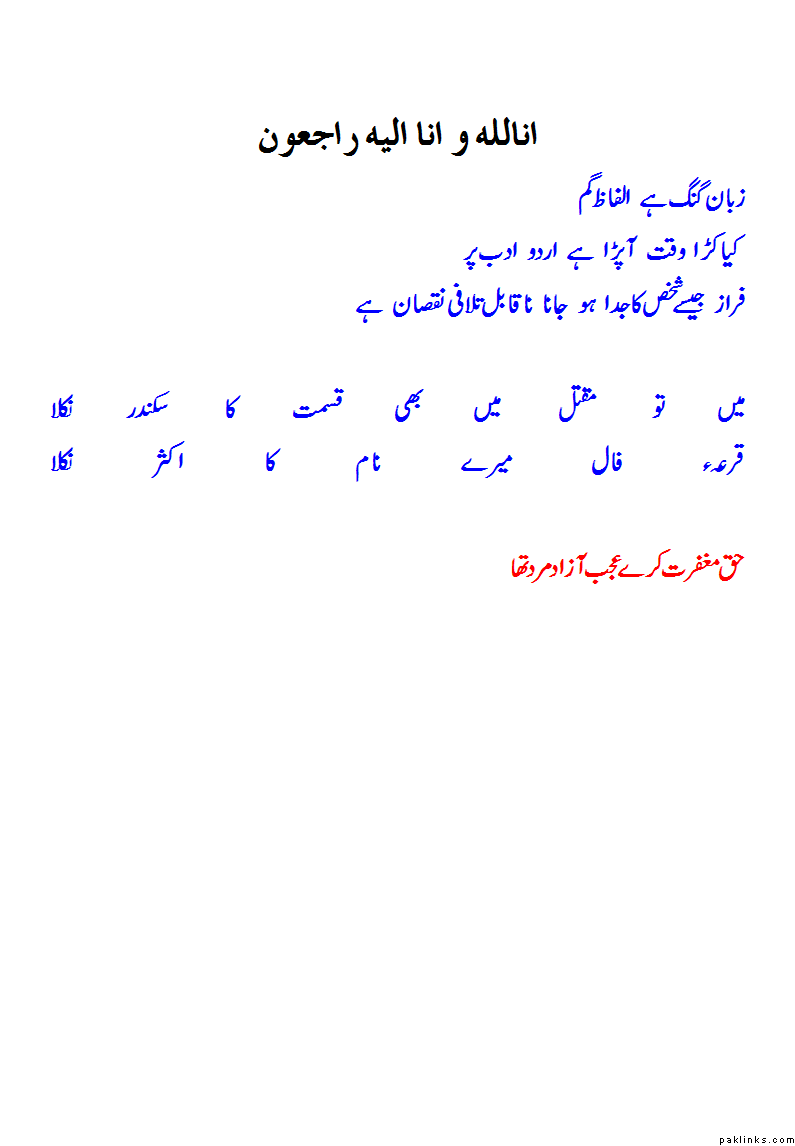 انالله و انا الیه راجعون
زبان گنگ ہے الفاظ گم
کیا کڑا وقت آپڑا ہے اردو ادب پر
فراز جیسے شخص کا جدا ہو جانا ناقابل تلافی نقصان ہے
میں تو مقتل میں بھی قسمت کا سکندر نکلا
قرعہء فال میرے نام کا اکثر نکلا
حق مغفرت کرے عجب آزاد مرد تھا
paklinks.com